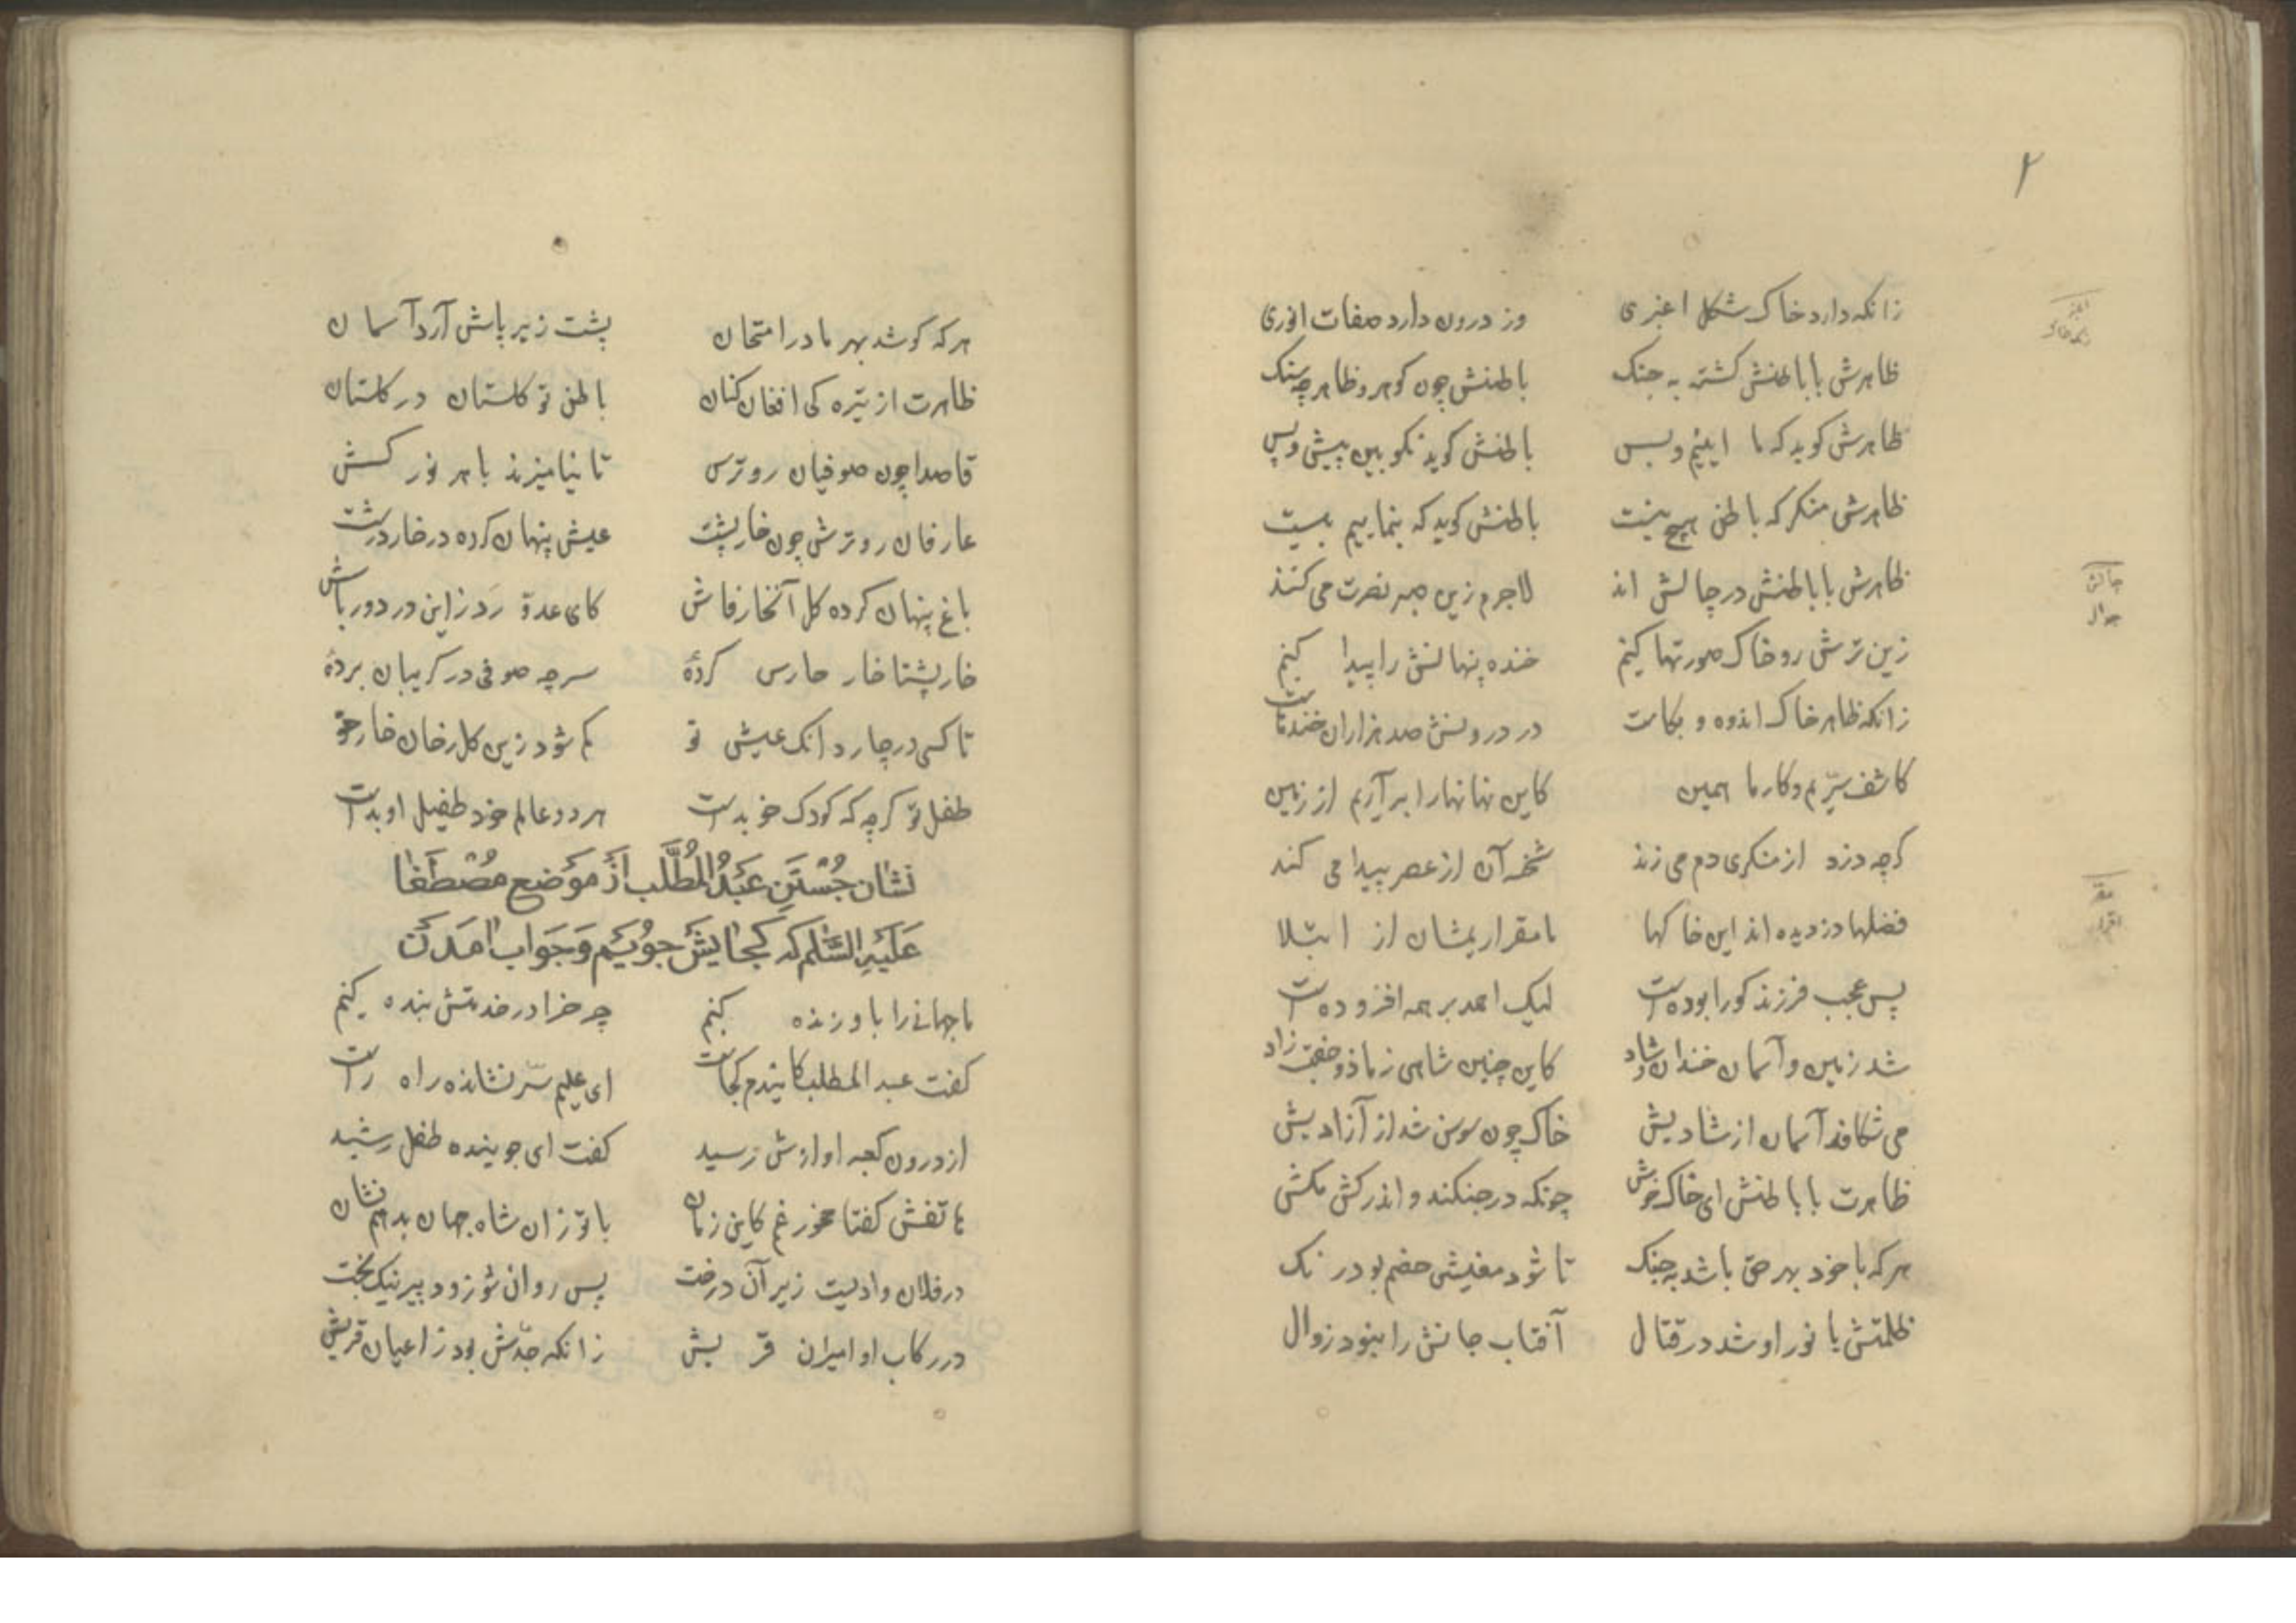 ۲
زانکه دارد خاک شکل اغبری وز درون دارد صفات انوری
ظاهرش با باطنش کشته به جنک باطنش چون کوهر و ظاهر چو سنک
ظاهرش کوید که ما اینیم و بس باطنش کوید نکو بین پیش و پس
ظاهرش منکر که باطن هیچ نیست باطنش کوید که بنماییم بیست
ظاهرش با باطنش در چالش اند لاجرم زین صبر نصرت می کشند
زین ترش رو خاک صورتها کنیم خنده پنهانش را پیدا کنیم
زانکه ظاهر خاک اندوه و بکاست در درونش صد هزاران خندهاست
کاشف سرّیم و کار ما همین کاین نهانها را بر آریم از زمین
کرچه دزد از منکری دم می زند شحنه آن از عصر پیدا می کند
فضلها دزدیده اند این خاکها تا مقر آریمشان از ابتلا
پس عجب فرزند کو را بوده است لیک احمد بر همه افزوده است
شد زمین و آسمان خندان و شاد کاین چنین شاهی ز ما دو جفت زاد
می شکافد آسمان از شادیش خاک چون سوسن شد از آزادیش
ظاهرت با باطنش ای خاک خوش چونکه در جنکند و اندر کش مکش
هر که با خود بهر حق باشد به جنک تا شود معنیش خصم بو و رنک
ظلمتش با نور او شد در قتال آفتاب جانش را نبود زوال
اغبر
رنک خاک
چالش
جوال
مقر
اقرار
هر که کوشد بهر ما در امتحان پشت زیر پاش آرد آسمان
ظاهرت از تیره کی افغان کنان باطن تو کلستان در کلستان
قاصدا چون صوفیان رو ترس تا نیامیزند با هر نور کش
عارفان رو ترش چون خارپشت عیش پنهان کرده در خار درشت
باغ پنهان کرده کل آن خار فاش کای عدوّ زدد زین در دور باش
خارپشتا خار حارس کردهٔ سر چه صوفی در کریبان بردهٔ
تا کسی در چار دانک عیش تو کم شود زین کل رخان خار خو
طفل تو کرچه که کودک خو بدست هر دو عالم خود طفیل او بدست
نشان جُستن عبدُ المُطّلب از موضع مصطفا
علیه السّلم که کجایش جویم و جواب آمدن
ما جهانی را باو زنده کنیم چرخ را در خدمتش بنده کنیم
کفت عبد المطلب کایندم کجاست ای علیم سرّ نشان ده راه راست
از درون کعبه آوازش رسید کفت ای جوینده طفل رشید
هاتفش کفتا مخور غم کاین زمان با تو زان شاه جهان بدهم نشان
در فلان وادیست زیر آن درخت پس روان شو زود پیر نیک بخت
در رکاب او امیران قریش زانکه جدّش بود ز اعیان قریش